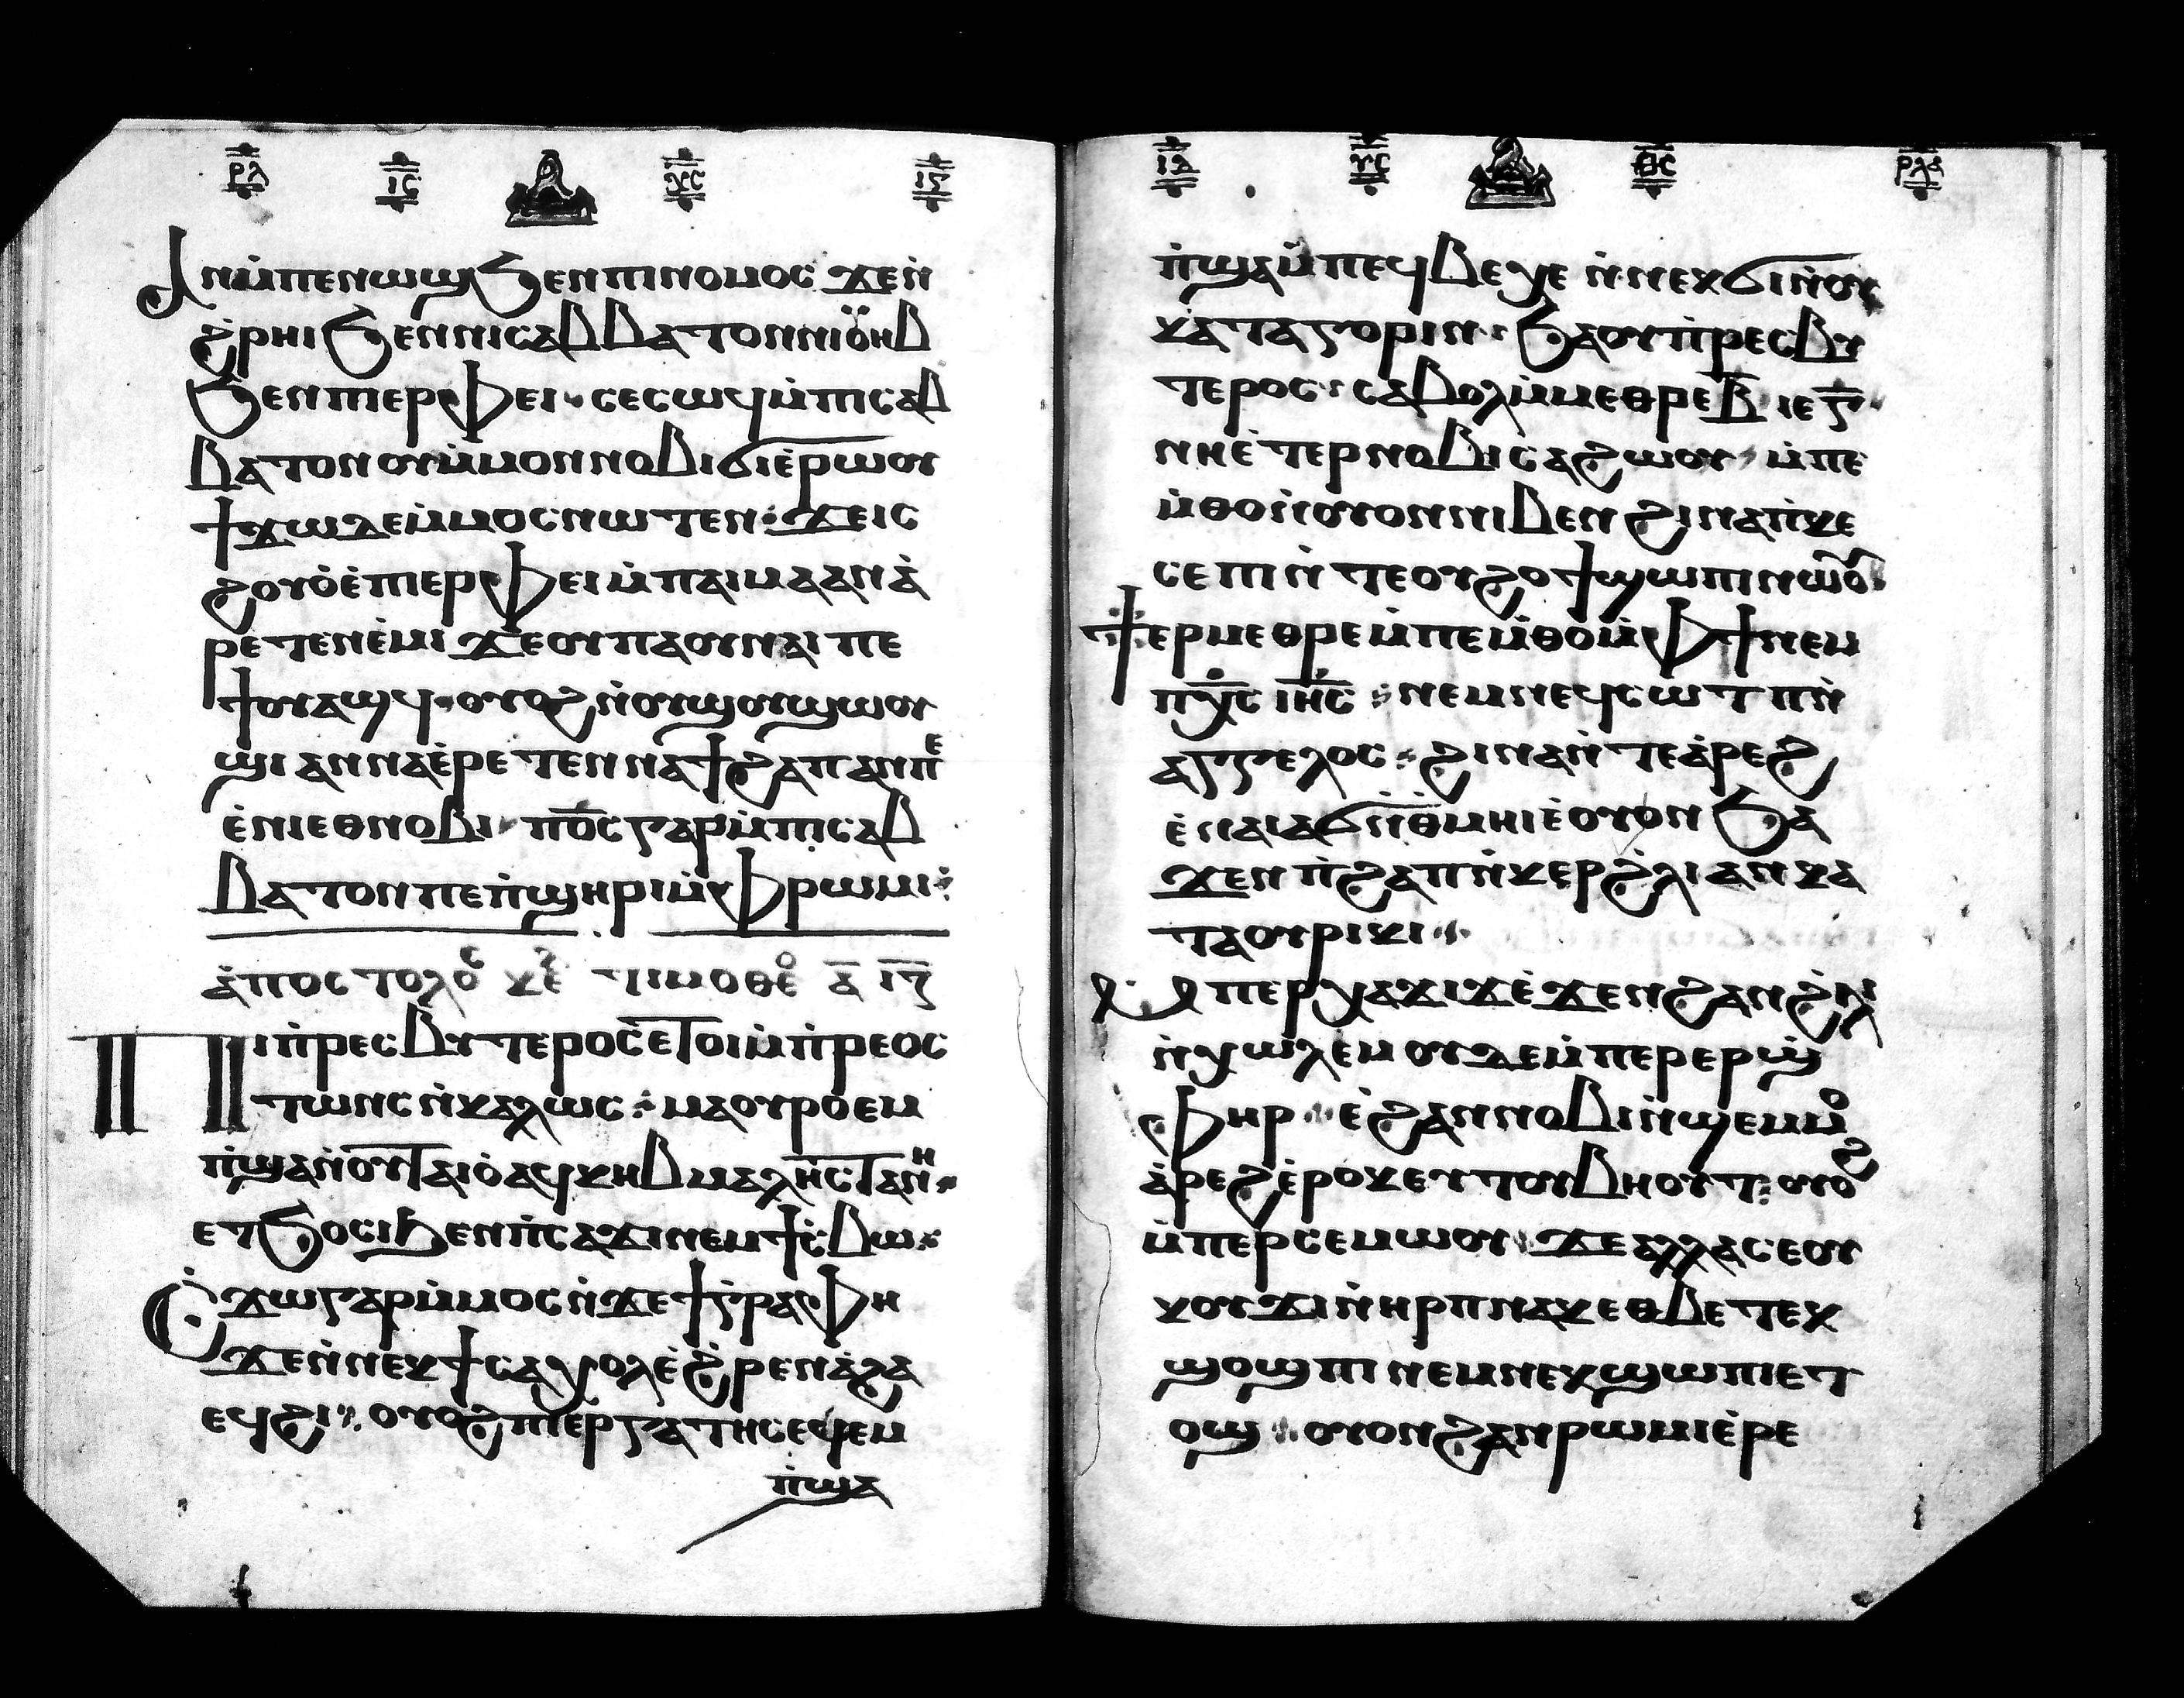 ⲣⲗ ⲓⲥ ⲭⲥ ⲓⲋ
Ⲓⲛⲙ̀ⲡⲉⲛⲱϣ ϧⲉⲛⲡⲓⲛⲟⲙⲟⲥ ϫⲉⲛ̀
ϩ̀ⲣⲏⲓ ϧⲉⲛⲛⲓⲥⲁⲃⲃⲁⲧⲟⲛ ⲛⲓⲟⲩⲏⲃ
ϧⲉⲛⲡⲓⲉⲣⲫⲉⲓ ⲥⲉⲥⲱϥ ⲙ̀ⲡⲓⲥⲁⲃ
ⲃⲁⲧⲟⲛ ⲟⲩⲙ̀ⲙⲟⲛ ⲛⲟⲃⲓ ϭⲓ ⲉ̀ⲣⲱⲟⲩ
ϯϫⲱ ⲇⲉ ⲙ̀ⲙⲟⲥ ⲛⲱⲧⲉⲛ ϫⲉ ⲓⲥ
ϩⲟⲩⲟ̀ ⲉ̀ⲡⲓⲉⲣⲫⲉⲓ ⲙ̀ⲡⲁⲓⲙⲁ ⲁⲛⲁ̀
ⲣⲉⲧⲉⲛⲉ̀ⲙⲓ ϫⲉ ⲟⲩ ⲡⲁⲟⲩⲛⲁⲓ ⲡⲉ
ϯⲟⲩⲁϣϥ ⲟⲩⲟϩ ⲛ̀ⲟⲩϣⲟⲩϣⲱⲟⲩ
ϣⲓ ⲁⲛ ⲛⲁⲉ̀ⲣⲉⲧⲉⲛⲛⲁϯϩⲁⲡ ⲁⲛ ⲡⲉ
ⲉ̀ⲛⲓⲉⲑⲛⲟⲃⲓ ⲡⲟ̅ⲥ̅ ⲅⲁⲣ ⲙ̀ⲡⲓⲥⲁⲃ
ⲃⲁⲧⲟⲛ ⲡⲉ ⲡ̀ϣⲏⲣⲓ ⲙ̀ⲫⲣⲱⲙⲓ
ⲁ̀ⲡⲟⲥⲧⲟⲗⲟⲥ ⲕⲉ ⲧⲓⲙⲟⲑⲉⲟ ⲁ̅ ⲓ̅ⲍ̅
Ⲡⲓⲡ̀ⲣⲉⲥⲃⲩⲧⲉⲣⲟⲥ ⲉⲧⲟⲓ ⲙ̀ⲡ̀ⲣⲉⲟⲥ
ⲧⲱⲛⲥ ⲛ̀ⲕⲁⲗⲱⲥ ⲙⲁⲣⲟⲩⲉⲣ
ⲡ̀ϣⲁ ⲛ̀ⲟⲩⲧⲁⲓⲟ̀ ⲁϥⲕⲏⲃ ⲙⲁⲗⲏⲥⲧⲁ ⲛⲏ
ⲉⲧϧⲟⲥⲓ ϧⲉⲛⲡ̀ⲥⲁϫⲓ ⲛⲉⲙ ϯⲥ̀ⲃⲱ
Ⲥ̀ϫⲱ ⲅⲁⲣ ⲙ̀ⲙⲟⲥ ⲛ̀ϫⲉ ϯⲅ̀ⲣⲁⲫⲏ
ϫⲉ ⲛ̀ⲛⲉⲕϯⲥⲁϫⲟⲗ ⲉ̀ϩ̀ⲣⲉⲛ ⲁ̀ϩⲁ
ⲉϥϩⲓ ⲟⲩⲟϩ ⲡⲓⲉⲣⲅⲁⲧⲏⲥ ⲉϥⲉⲙ
ⲡ̀ϣⲁ
ⲓⲍ ⲩⲥ ⲑⲥ ⲣⲗⲁ
ⲡ̀ϣⲁ ⲙ̀ⲡⲉϥⲃⲉⲭⲉ ⲛ̀ⲛⲉⲕϭⲓ ⲛ̀ⲟⲩ
ⲕⲁⲧⲁⲅⲟⲣⲓⲛ ϧⲁ ⲟⲩⲡ̀ⲣⲉⲥⲃⲩ
ⲧⲉⲣⲟⲥ ⲥⲁⲃⲟⲗ ⲙ̀ⲙⲉⲑⲣⲉ ⲃ̅ ⲓⲉ ⲅ̅
ⲛⲏ ⲉ̀ⲧⲉⲣⲛⲟⲃⲓ ⲥⲁϩⲱⲟⲩ ⲙ̀ⲡⲉ
ⲙ̀ⲑⲟ ⲛ̀ⲟⲩⲟⲛ ⲛⲓⲃⲉⲛ ϩⲓⲛⲁ ⲡ̀ⲕⲉ
ⲥⲉⲡⲓ ⲛ̀ⲧⲉ ⲟⲩϩⲟϯ ϣⲱⲡⲓ ⲛⲱⲟⲩ
Ϯⲉⲣⲙⲉⲑⲣⲉ ⲙ̀ⲡⲉⲙ̀ⲑⲟ ⲙ̀ⲫϯ ⲛⲉⲙ
ⲡⲭ̅ⲥ̅ ⲓⲏ̅ⲥ̅ ⲛⲉⲙ ⲛⲉϥⲥⲱⲧⲡ ⲛ̀
ⲁⲅⲅⲉⲗⲟⲥ ϩⲓⲛⲁ ⲛ̀ⲧⲉⲁ̀ⲣⲉϩ
ⲉ̀ⲛⲁⲓ ⲁϭⲛⲉ ⲑⲙⲏⲓ ⲉ̀ⲟⲩⲟⲛ ϧⲁ
ϫⲉⲛ ⲡ̀ϩⲁⲡ ⲛ̀ⲕⲉⲣϩ̀ⲗⲓ ⲁⲛ ⲕⲁ
ⲧⲁ ⲟⲩⲣⲓⲕⲓ
Ⲙ̀ⲡⲉⲣⲭⲁϫⲓϫ ⲉ̀ϫⲉⲛ ϩⲁⲛϩ̀ⲗⲓ
ⲛ̀ⲭⲱⲗⲉⲙ ⲟⲩⲇⲉ ⲙ̀ⲡⲉⲣⲉⲣϣ̀
ⲫⲏⲣ ⲉ̀ϩⲁⲛⲛⲟⲃⲓ ⲛ̀ϣⲉⲙⲙⲟ
ⲁ̀ⲣⲉϩ ⲉ̀ⲣⲟⲕ ⲉⲕⲧⲟⲩⲃⲏⲟⲩⲧ ⲟⲩⲟϩ
ⲙ̀ⲡⲉⲣⲥⲉⲙⲱⲟⲩ ϫⲉ ⲁⲗⲗⲁ ⲥⲉ ⲟⲩ
ⲕⲟⲩϫⲓ ⲛ̀ⲏⲣⲡ ⲛⲁⲕ ⲉⲑⲃⲉ ⲧⲉⲕ
ϣⲟϣⲡⲓ ⲛⲉⲙ ⲛⲉⲕϣⲱⲛⲓ ⲉⲧ
ⲟϣ ⲟⲩⲟⲛ ϩⲁⲛⲣⲱⲙⲓ ⲉ̀ⲣⲉ